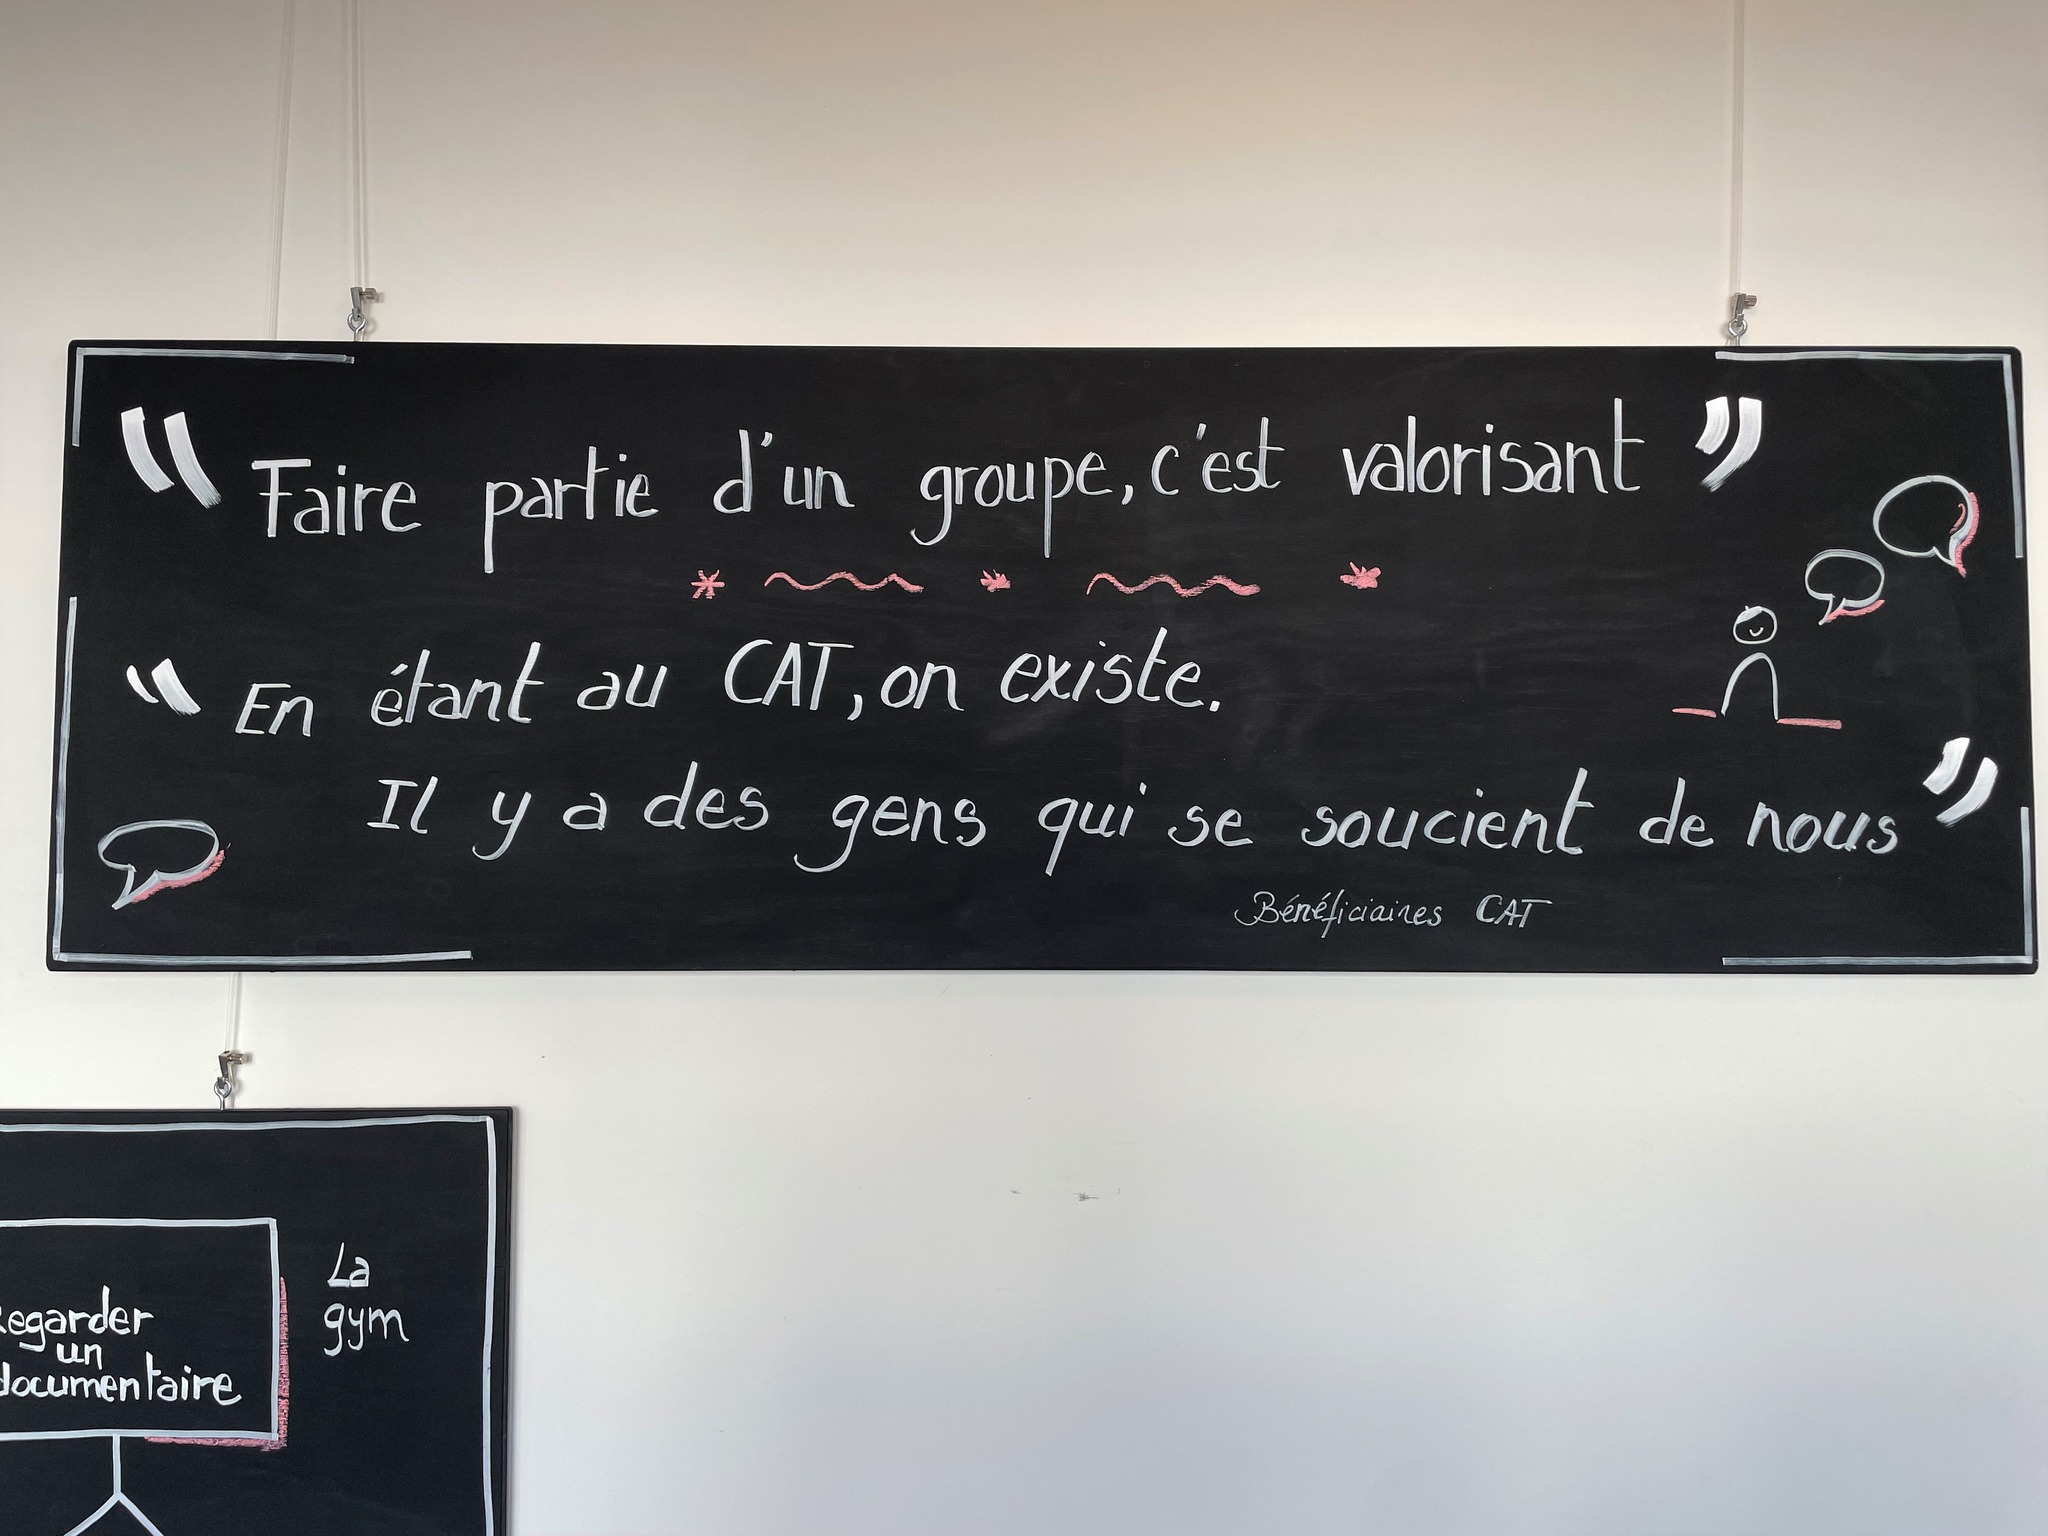 “Faire partie d'un groupe, c'est valorisant”
“En étant au CAT, on existe.
Il y a des gens qui se soucient de nous”
Bénéficiaires CAT
Regarder
un
documentaire
La
gym